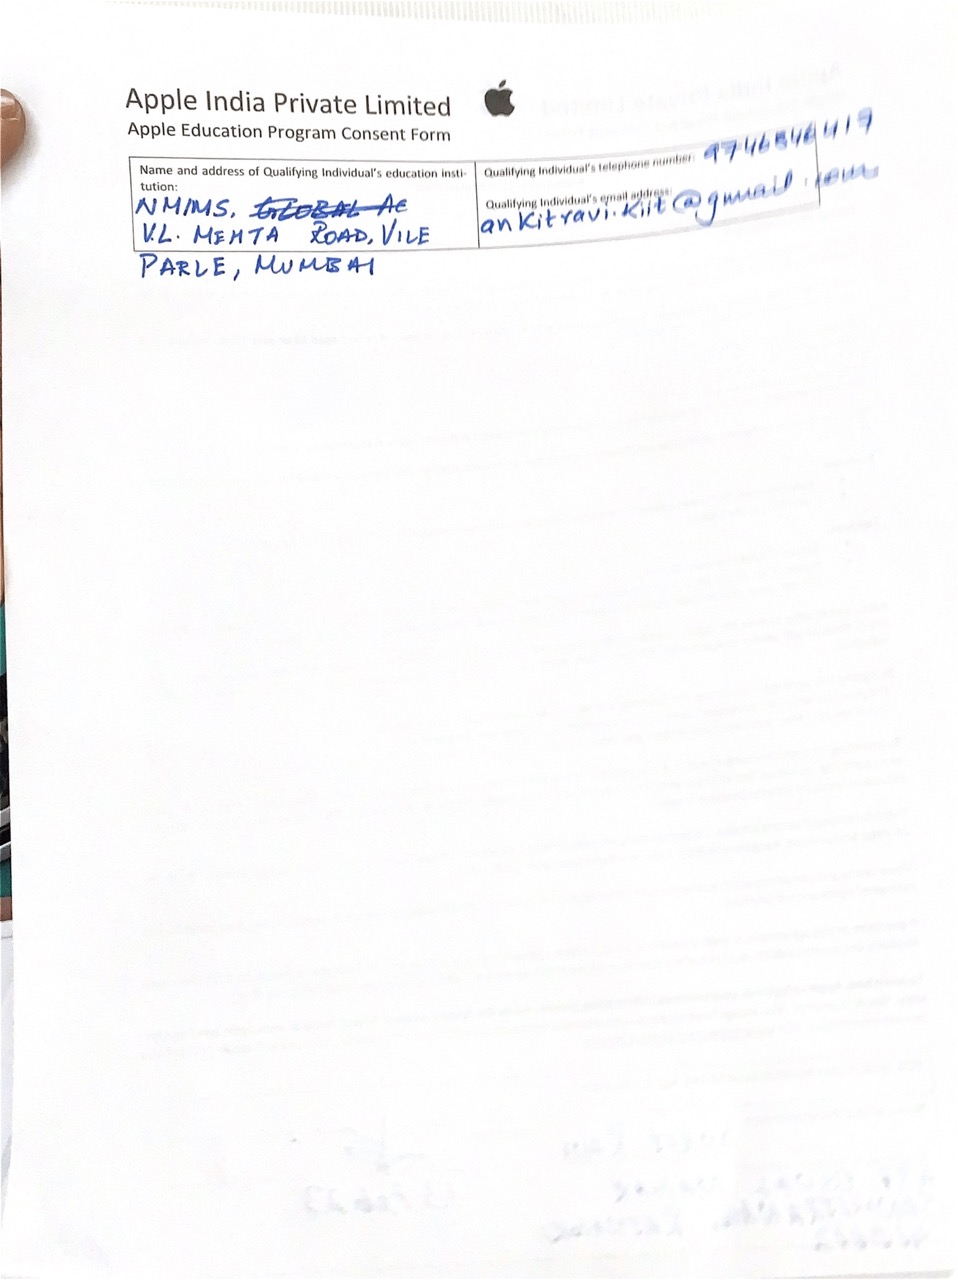 Apple India Private Limited
Apple Education Program Consent Form
Name and address of Qualifying Individual's education insti-
tution:
NMIMS, GLOBAL AC
V.L. MEHTA ROAD, VILE
PARLE, MUMBAI
Qualifying Individual's telephone number: 9746846419
Qualifying Individual's email address:
ankitravi.kiit@gmail.com